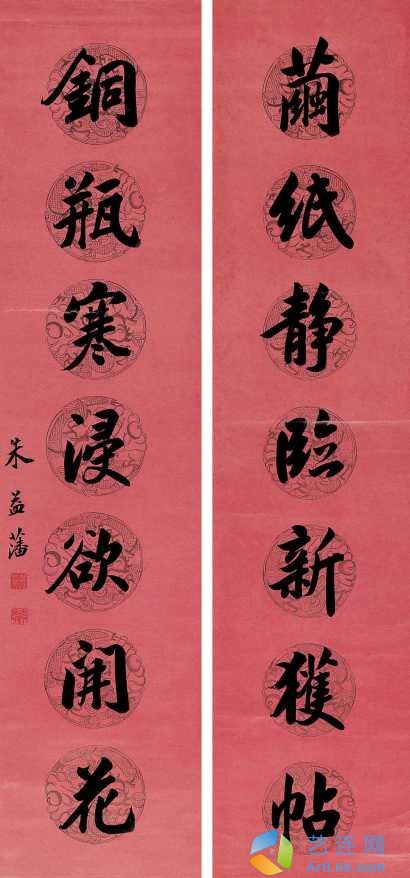 繭紙静臨新獲帖
銅瓶寒浸欲開花
朱益藩
艺连网
ArtLnk.com